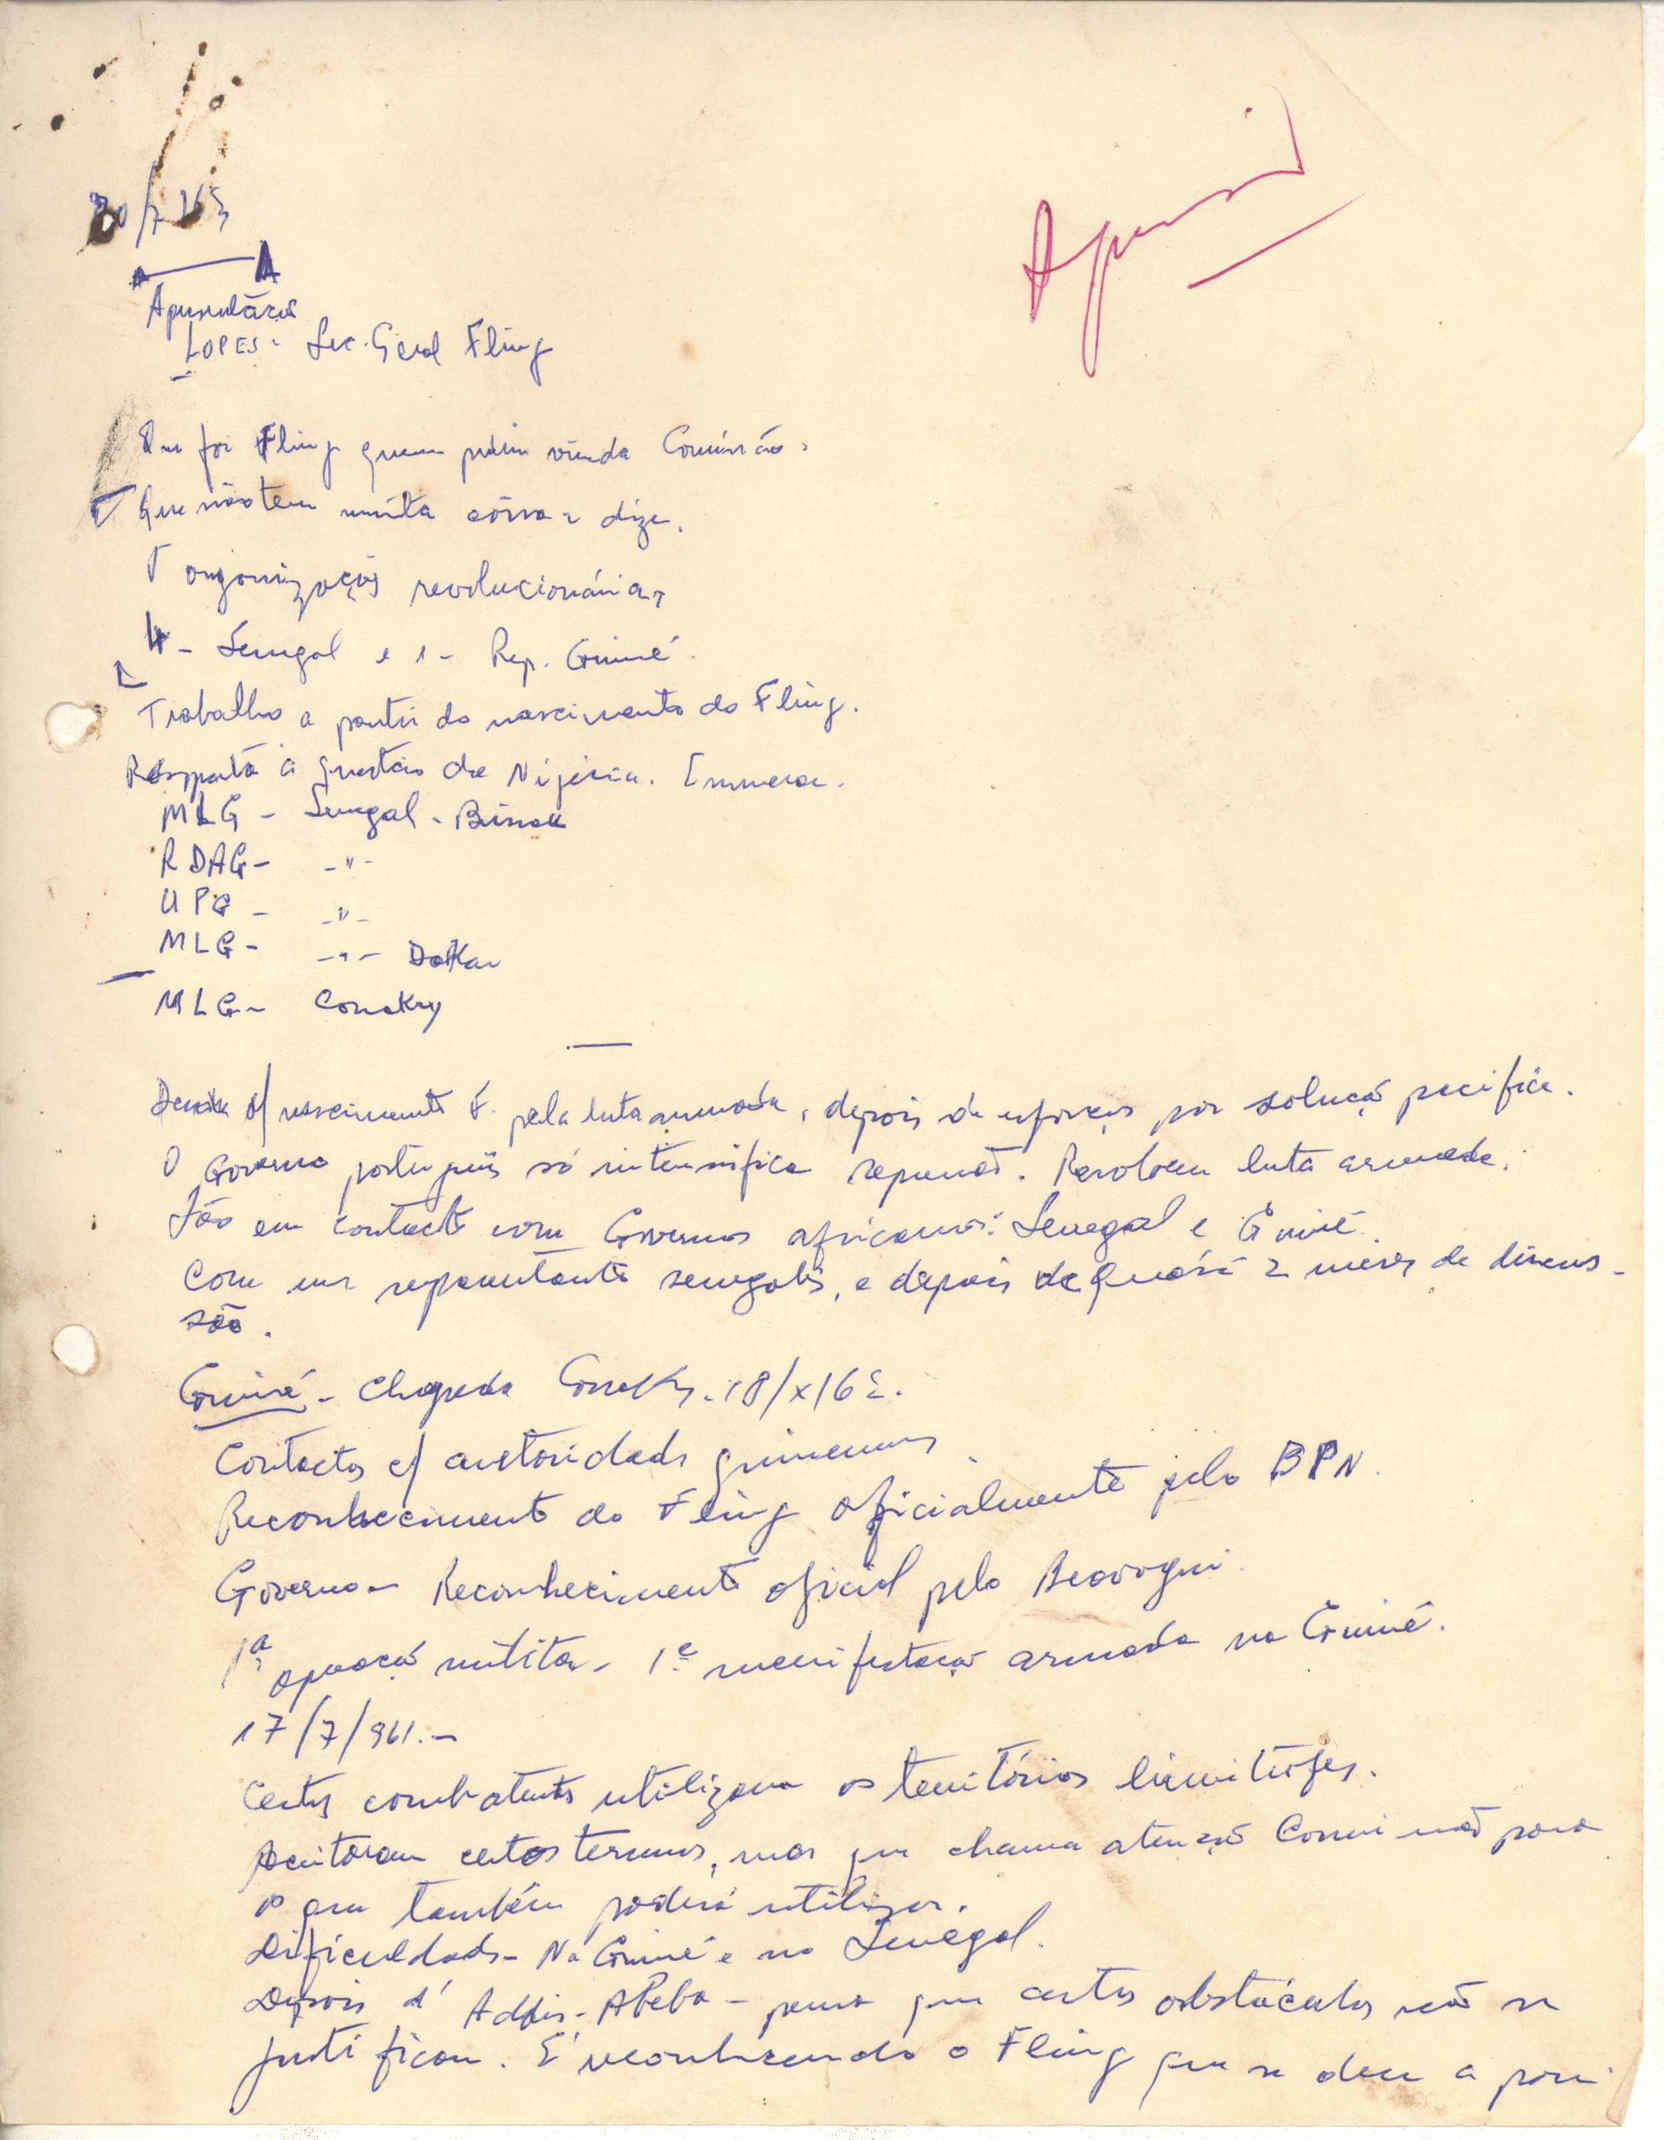 20/7/63
LOPES - Sec. Geral Fling
Que foi Fling quem pediu vinda Comissão.
Que não tem muita coisa a dizer.
5 organizações revolucionárias
4 - Senegal e 1 - Rep. Guiné.
Trabalho a partir do nascimento do Fling.
Resposta à questão da Nigéria. Enumera.
MLG - Senegal - Bissau
RDAG - - " -
UPG - - " -
MLG - - " - Dakar
MLG - Conakry
nascimento F. pela luta armada, depois de esforços por solução pacífica.
O Governo português só intensifica repressão. luta armada.
São em contacto com Governos africanos: Senegal e Guiné.
Com um representante senegalês, e depois de quási 2 meses de discus-
são.
Guiné - Chegada Conakry - 18/X/62.
Contactos c/ autoridades guineenses.
Reconhecimento do Fling oficialmente pelo BPN.
Governo - Reconhecimento oficial pelo Beavogui.
1ª operação militar - 1ª manifestação armada na Guiné.
17/7/961. -
Certos combatentes utilizam os territórios limítrofes.
Aceitaram certos termos, mas que chama atenção Comissão para
o que também poderá utilizar.
Dificuldades - Na Guiné e no Senegal.
Depois d' Addis-Abeba - pensa que certos obstáculos não se
justificam. É reconhecendo o Fling que se deu a